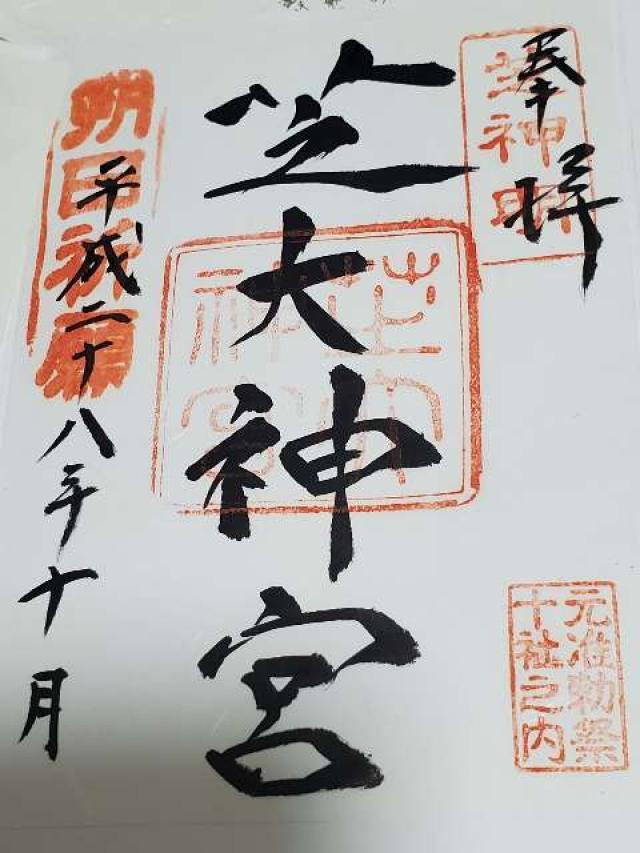 奉拝
芝神明
芝大神宮
芝大神宮
元准勅祭
十社之内
平成二十八年十月